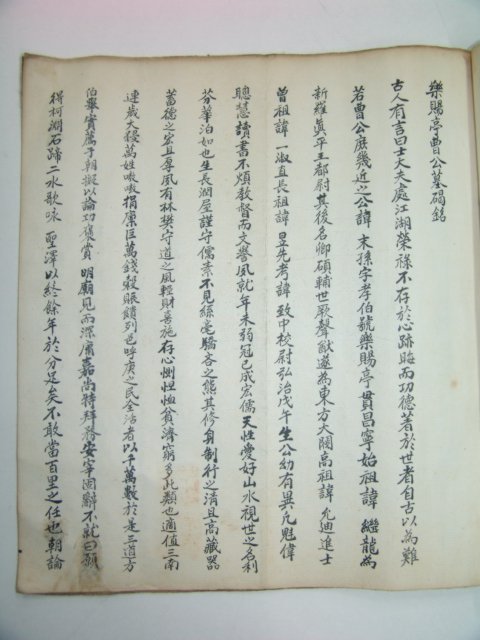 樂賜亭曺公墓碣銘
古人有言曰士大夫處江湖榮祿不存於心跡晦而功德著於世者自古以為難
若曺公庶幾近之公諱 末孫字孝伯號樂賜亭貫昌寧始祖諱 繼龍為
新羅眞平王都尉其後名卿碩輔世厥聲猷遂為東方大閥高祖諱 允迪進士
曾祖諱 一淑直長祖諱 昱先考諱 致中校尉弘治戊午生公幼有異凡魁偉
聰慧讀書不煩敎督而文譽夙就年未弱冠已成宏儒天性愛好山水視世之名利
芬華泊如也生長潤屋謹守儒素不見絲毫驕吝之態其修身制行之淸且高藏器
蓄德之宏且厚夙有林樊守道之風輕財喜施存心惻怛恤貧濟窮多此類也適値三南
連歲大祲萬姓嗷嗷捐廩巨萬錢穀賑饋列邑呼庚之民全活者以千萬數於是三道方
伯擧實薦于朝擬以論功褒賞 明廟見而深庸嘉尚特拜務安宰固辭不就曰願
得柯淵石蹄二水歌咏 聖澤以終餘年於分足矣不敢當百里之任也朝論